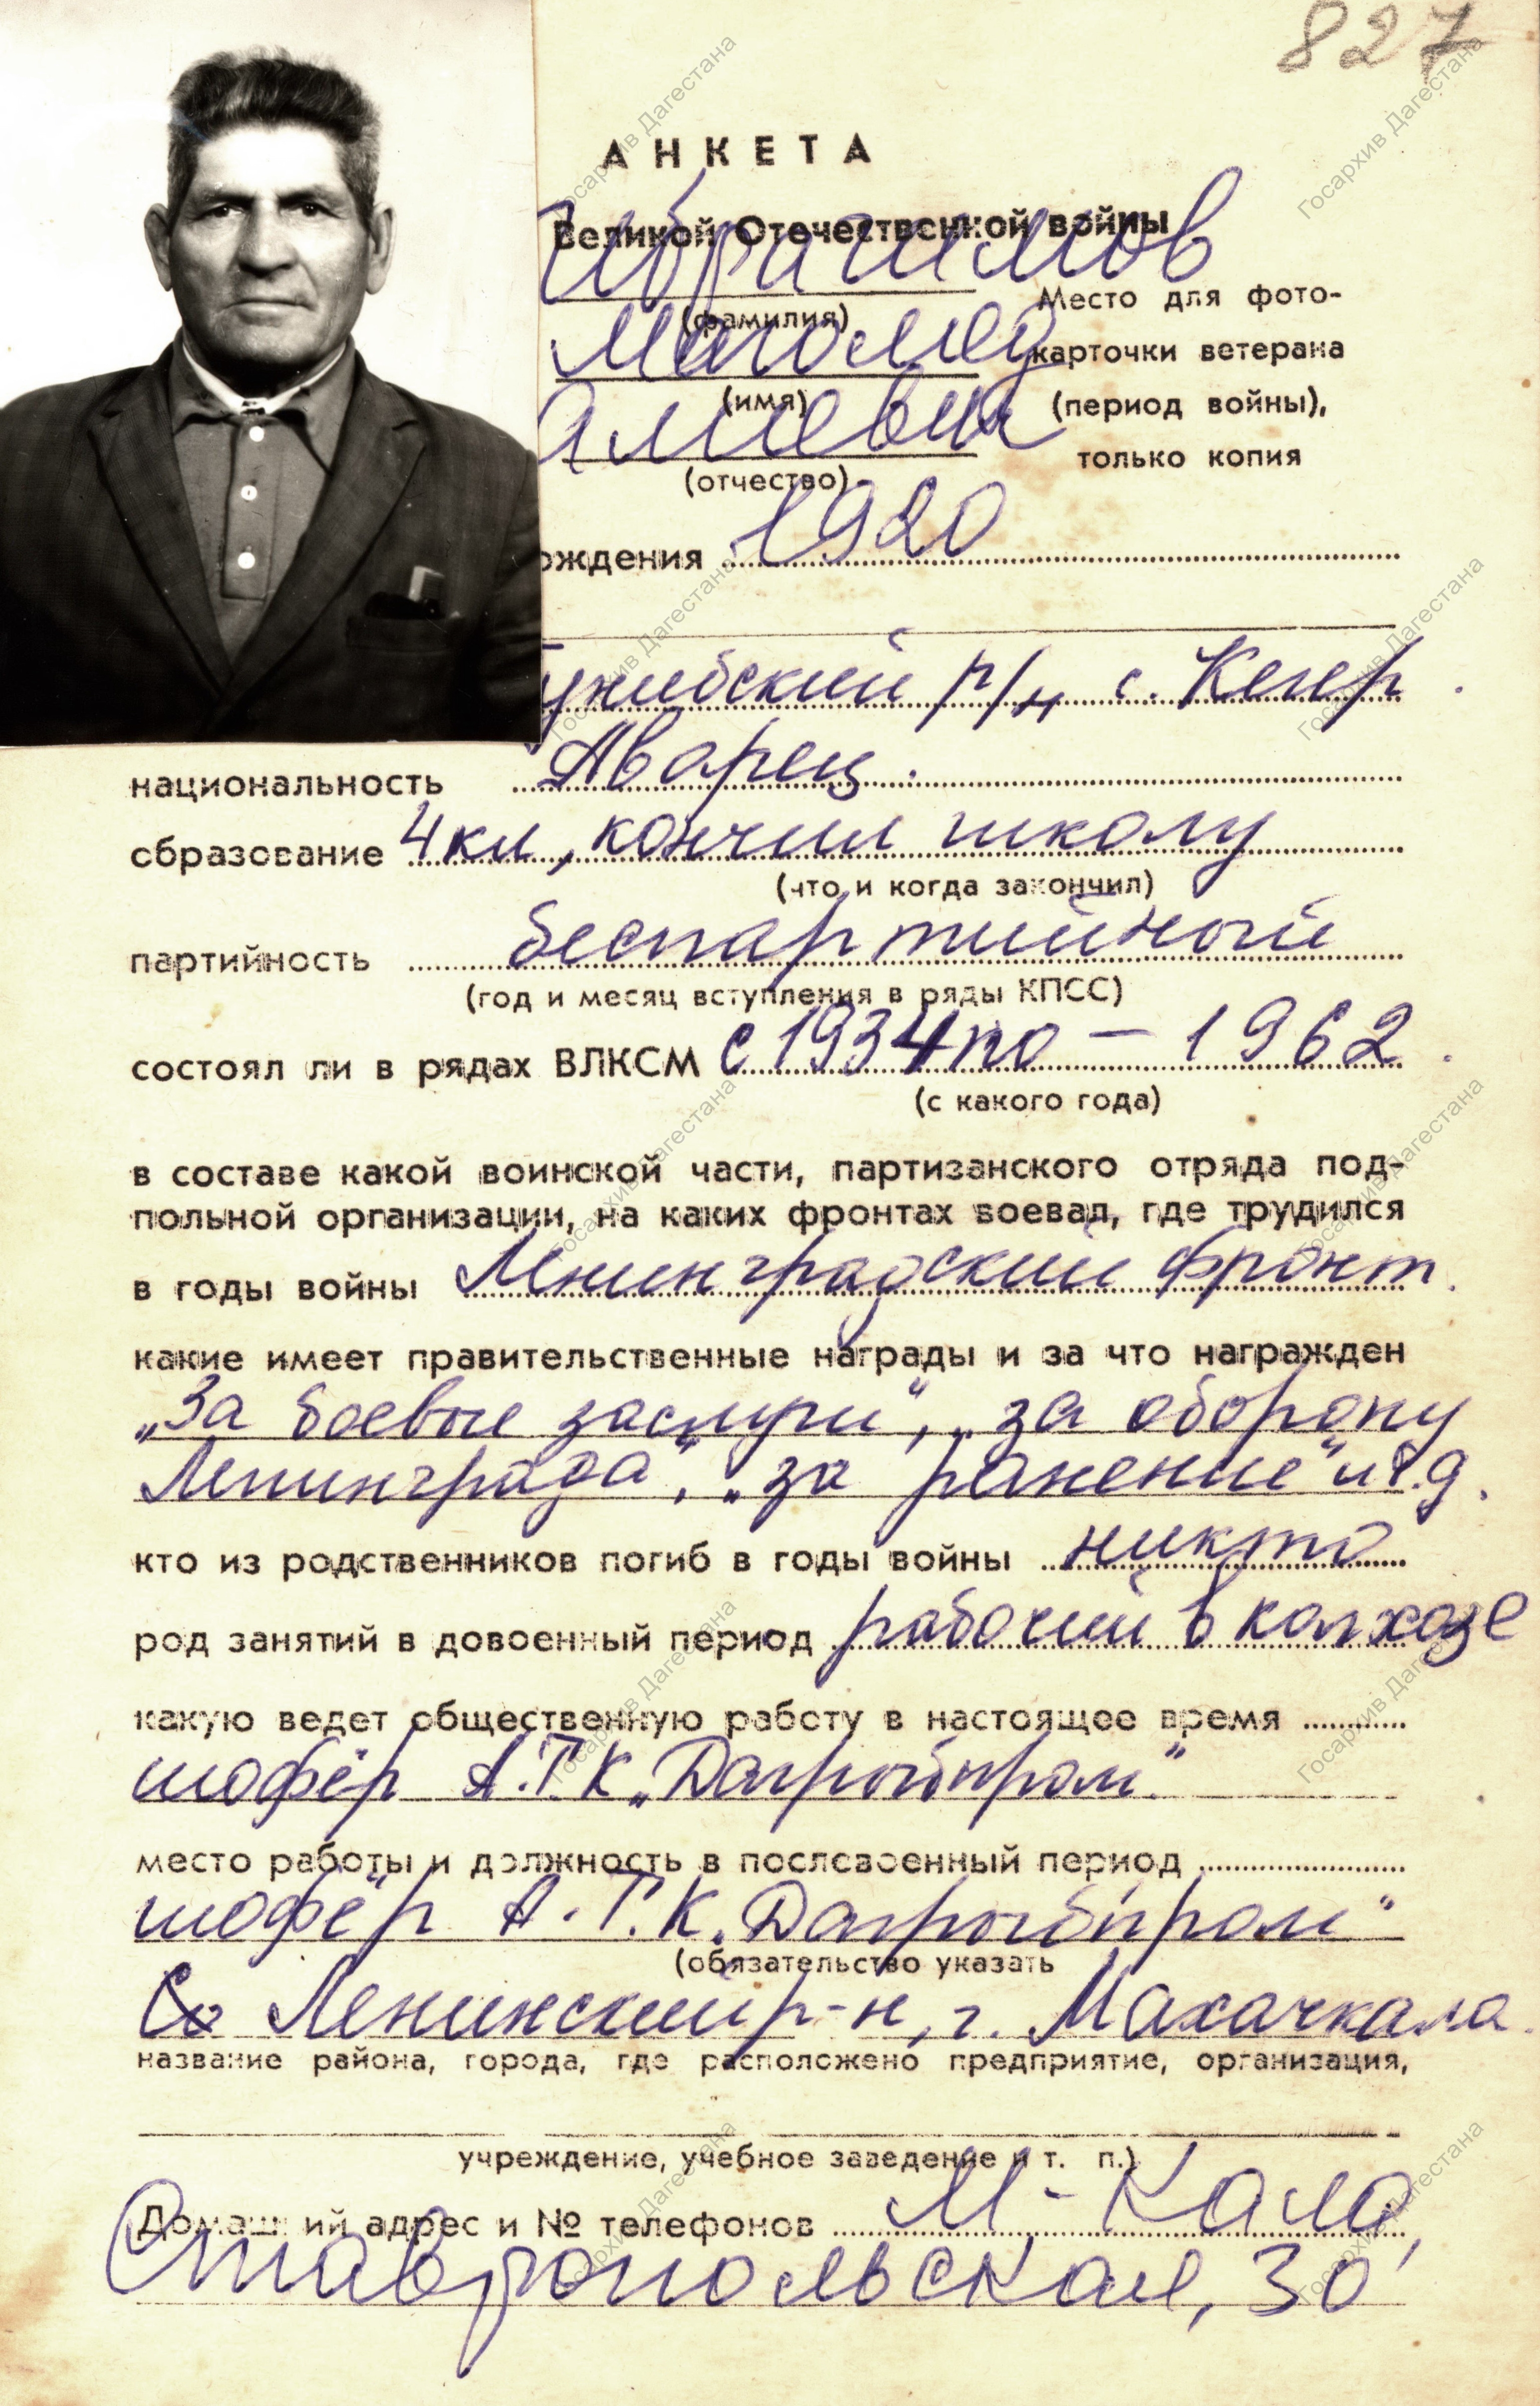 827
АНКЕТА
Великой Отечественной войны
Ибрагимов
(фамилия)
Место для фото-
Магомед
карточки ветерана
(имя)
(период войны),
Алиевич
только копия
(отчество)
ождения 1920
унибский р/н с. Кегер.
национальность Аварец.
образование 4 кл, кончил школу
(что и когда закончил)
партийность беспартийный
(год и месяц вступления в ряды КПСС)
состоял ли в рядах ВЛКСМ с 1934 по – 1962.
(с какого года)
в составе какой воинской части, партизанского отряда под-
польной организации, на каких фронтах воевал, где трудился
в годы войны Лнинградский фронт.
какие имеет правительственные награды и за что награжден
„За боевые заслуги", „за оборону
Ленинграда", „за ранение" и т.д.
кто из родственников погиб в годы войны никто
род занятий в довоенный период рабочий в колхозе
какую ведет общественную работу в настоящее время
шофёр А.Т.К „Дагрыбпром"
место работы и должность в послевоенный период
шофёр А.Т.К. „Дагрыбпром"
(обязательство указать
Ленинский р-н, г. Махачкала.
название района, города, где расположено предприятие, организация,
учреждение, учебное заведение и т. п.)
Домашний адрес и № телефонов М-Кала,
Ставропольская, 30
Госархив Дагестана